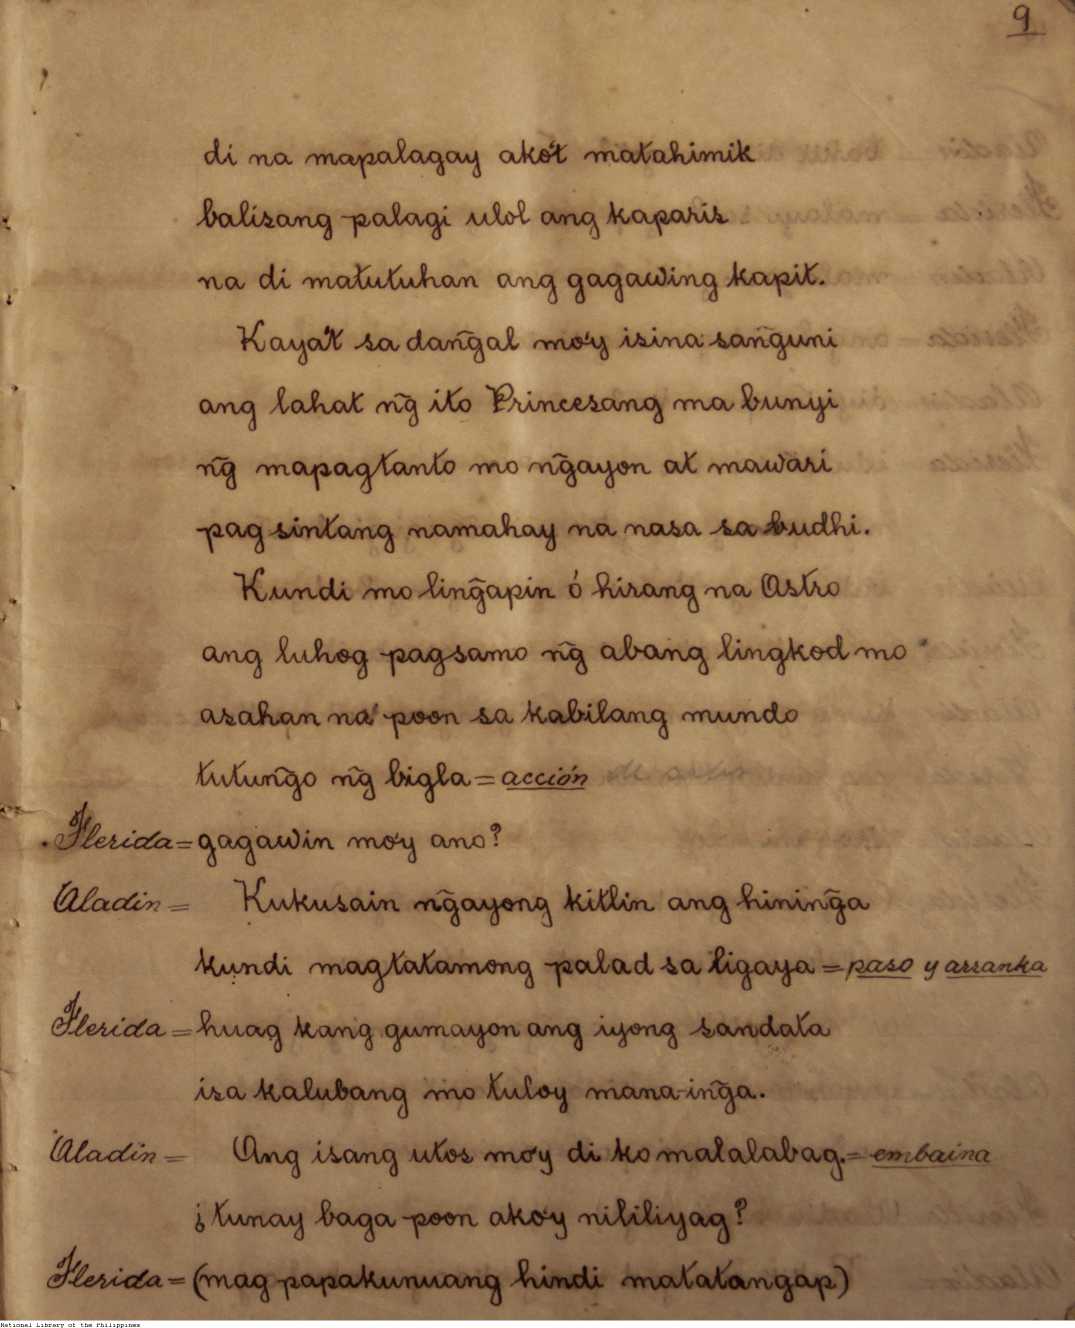 9
di na mapalagay ako't matahimik
balisang palagi ulol ang kaparis
na di matutuhan ang gagawing kapit.
Kaya't sa dang̃al mo'y isina sang̃guni
ang lahat ng̃ ito Princesang ma bunyi
ng̃ mapagtanto mo ng̃ayon at mawari
pag sintang namahay na nasa sa budhi.
Kundi mo ling̃apin ó hirang na Astro
ang luhog pagsamo ng̃ abang lingkod mo
asahan na' poon sa kabilang mundo
tutung̃o ng̃ bigla = acción
Flerida = gagawin mo'y ano?
Aladin = Kukusain ng̃ayong kitlin ang hining̃a
kundi magtatamong palad sa ligaya = paso y arranka
Flerida = huag kang gumayon ang iyong sandata
isa kalubang mo tuloy mana-ing̃a.
Aladin = Ang isang utos mo'y di ko malalabag. = embaina
¿tunay baga poon ako'y nililiyag?
Flerida = (mag papakunuang hindi matatangap)
National Library of the Philippines